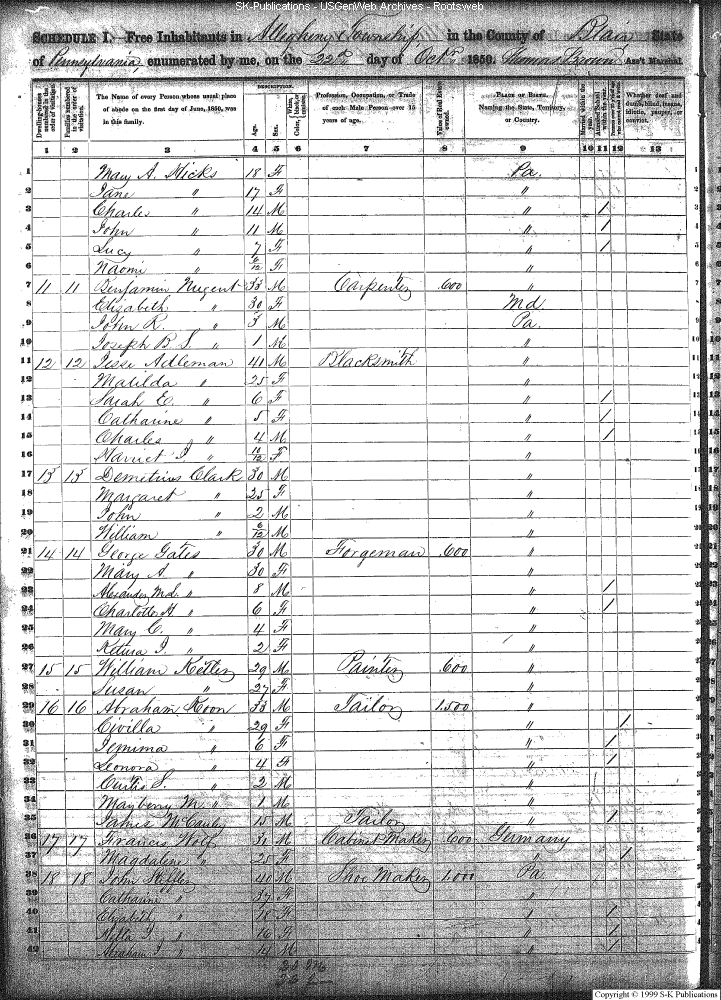 SK-Publications - USGenWeb Archives - Rootsweb
SCHEDULE I.—Free Inhabitants in Allegheny Township in the County of Blair State
of Pennsylvania, enumerated by me, on the 22nd day of Octr 1850. Thomas Brown Ass't Marshal.
DESCRIPTION.
Dwelling-houses numbered in the order of visitation.
Families numbered in the order of visitation.
The Name of every Person whose usual place of abode on the first day of June, 1850, was in this family.
Age.
Sex.
Color,
Profession, Occupation, or Trade of each Male Person over 15 years of age.
Value of Real Estate owned.
PLACE OF BIRTH. Naming the State, Territory, or Country.
Married within the year.
Attended School within the year.
Whether deaf and dumb, blind, insane, idiotic, pauper, or convict.
1 2 3 4 5 6 7 8 9 10 11 12 13
1 Mary A. Hicks 18 F Pa. 1
2 Jane " 17 F " 2
3 Charles " 14 M " / 3
4 John " 11 M " / 4
5 Lucy " 7 F " / 5
6 Naomi " 6/12 F " 6
7 11 11 Benjamin Nugent 33 M Carpenter 600 " 7
8 Elizabeth " 30 F Md 8
9 John R. " 3 M Pa. 9
10 Joseph B S. " 1 M " 10
11 12 12 Jesse Adleman 41 M Blacksmith " 11
12 Matilda " 25 F " 12
13 Sarah E. " 6 F " / 13
14 Catharine " 5 F " / 14
15 Charles " 4 M " / 15
16 Harriet I " 10/12 F " 16
17 13 13 Demetrius Clark 30 M " 17
18 Margaret " 25 F " 18
19 John " 2 M " 19
20 William " 6/12 M " 20
21 14 14 George Gates 30 M Forgeman 600 " 21
22 Mary A " 30 F " 22
23 Alexander Md. " 8 M " / 23
24 Charlotte H " 6 F " / 24
25 Mary C. " 4 F " 25
26 Retura I. " 2 F " 26
27 15 15 William Ketler 29 M Painter 600 " 27
28 Susan " 27 F " 28
29 16 16 Abraham Koon 33 M Tailor 1.500 " 29
30 Civilla " 29 F " / 30
31 Jemima " 6 F " / 31
32 Leonora " 4 F " / 32
33 Curtis S. " 2 M " 33
34 Mayberry M. " 1 M " 34
35 James McCauly 15 M Tailor " / 35
36 17 17 Francis Wolf 31 M Cabinet Maker 600 Germany 36
37 Magdalene " 25 F " / 37
38 18 18 John 40 M Shoe Maker 1.000 Pa 38
39 Catharine " 37 F " 39
40 Elizabeth " 18 F " / 40
41 I. " 16 F " / 41
42 Abraham I. " 14 M " / 42
Copyright © 1999 S-K Publications